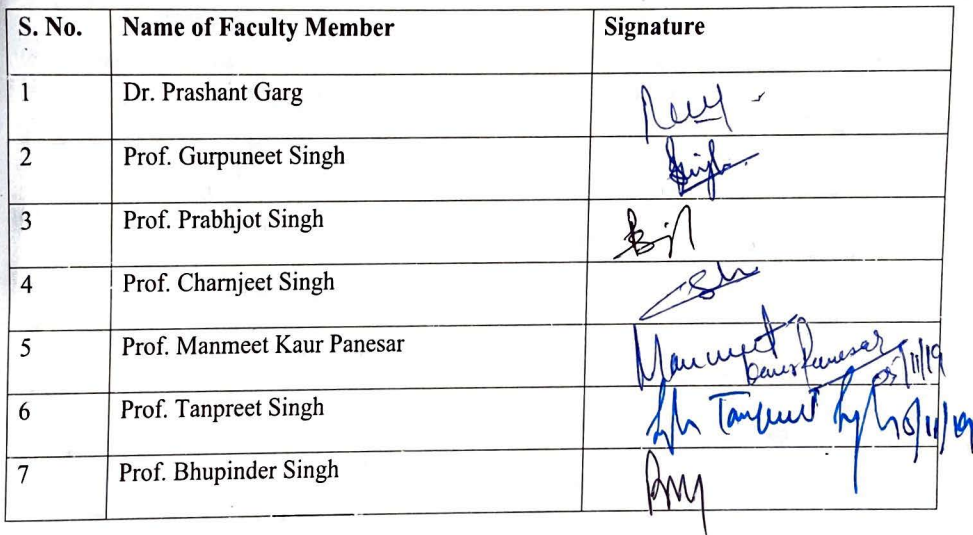 S. No. Name of Faculty Member Signature
1 Dr. Prashant Garg
2 Prof. Gurpuneet Singh Singh
3 Prof. Prabhjot Singh
4 Prof. Charnjeet Singh
5 Prof. Manmeet Kaur Panesar Manmeet
Kaur Panesar
05/11/19
6 Prof. Tanpreet Singh Tanpreet Singh 5/11/19
7 Prof. Bhupinder Singh